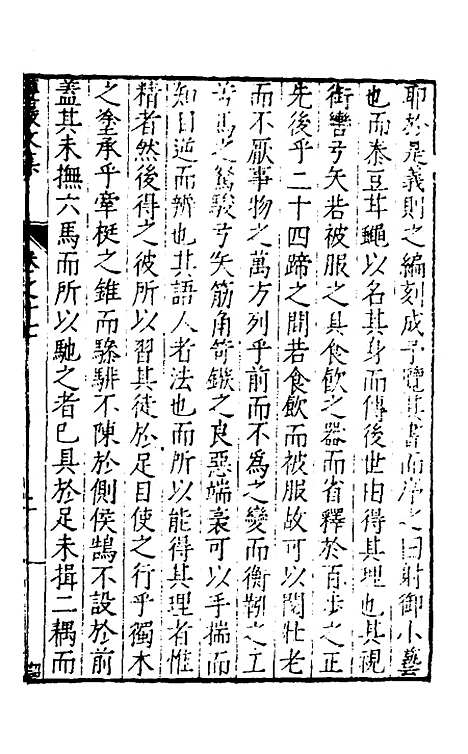 耶於是義則之編刻成予覽其書而序之曰射御小藝
也而泰豆茸蠅以名其身而傳後世由得其理也其視
銜轡弓矢若被服之具食飲之器而省釋於百步之正
先後乎二十四蹄之間若食飲而被服故可以閱壯老
而不厭事物之萬方列乎前而不為之變而衡軛之工
苦馬之駑駿弓矢筋角笴鏃之良惡端裹可以手揣而
知目逆而辨也其語人者法也而所以能得其理者惟
精者然後得之彼所以習其徒於足目使之行乎獨木
之塗承乎牽梃之錐而騄騑不陳於側侯鵠不設於前
蓋其未撫六馬而所以馳之者已具於足未揖二耦而
文集
卷之十七